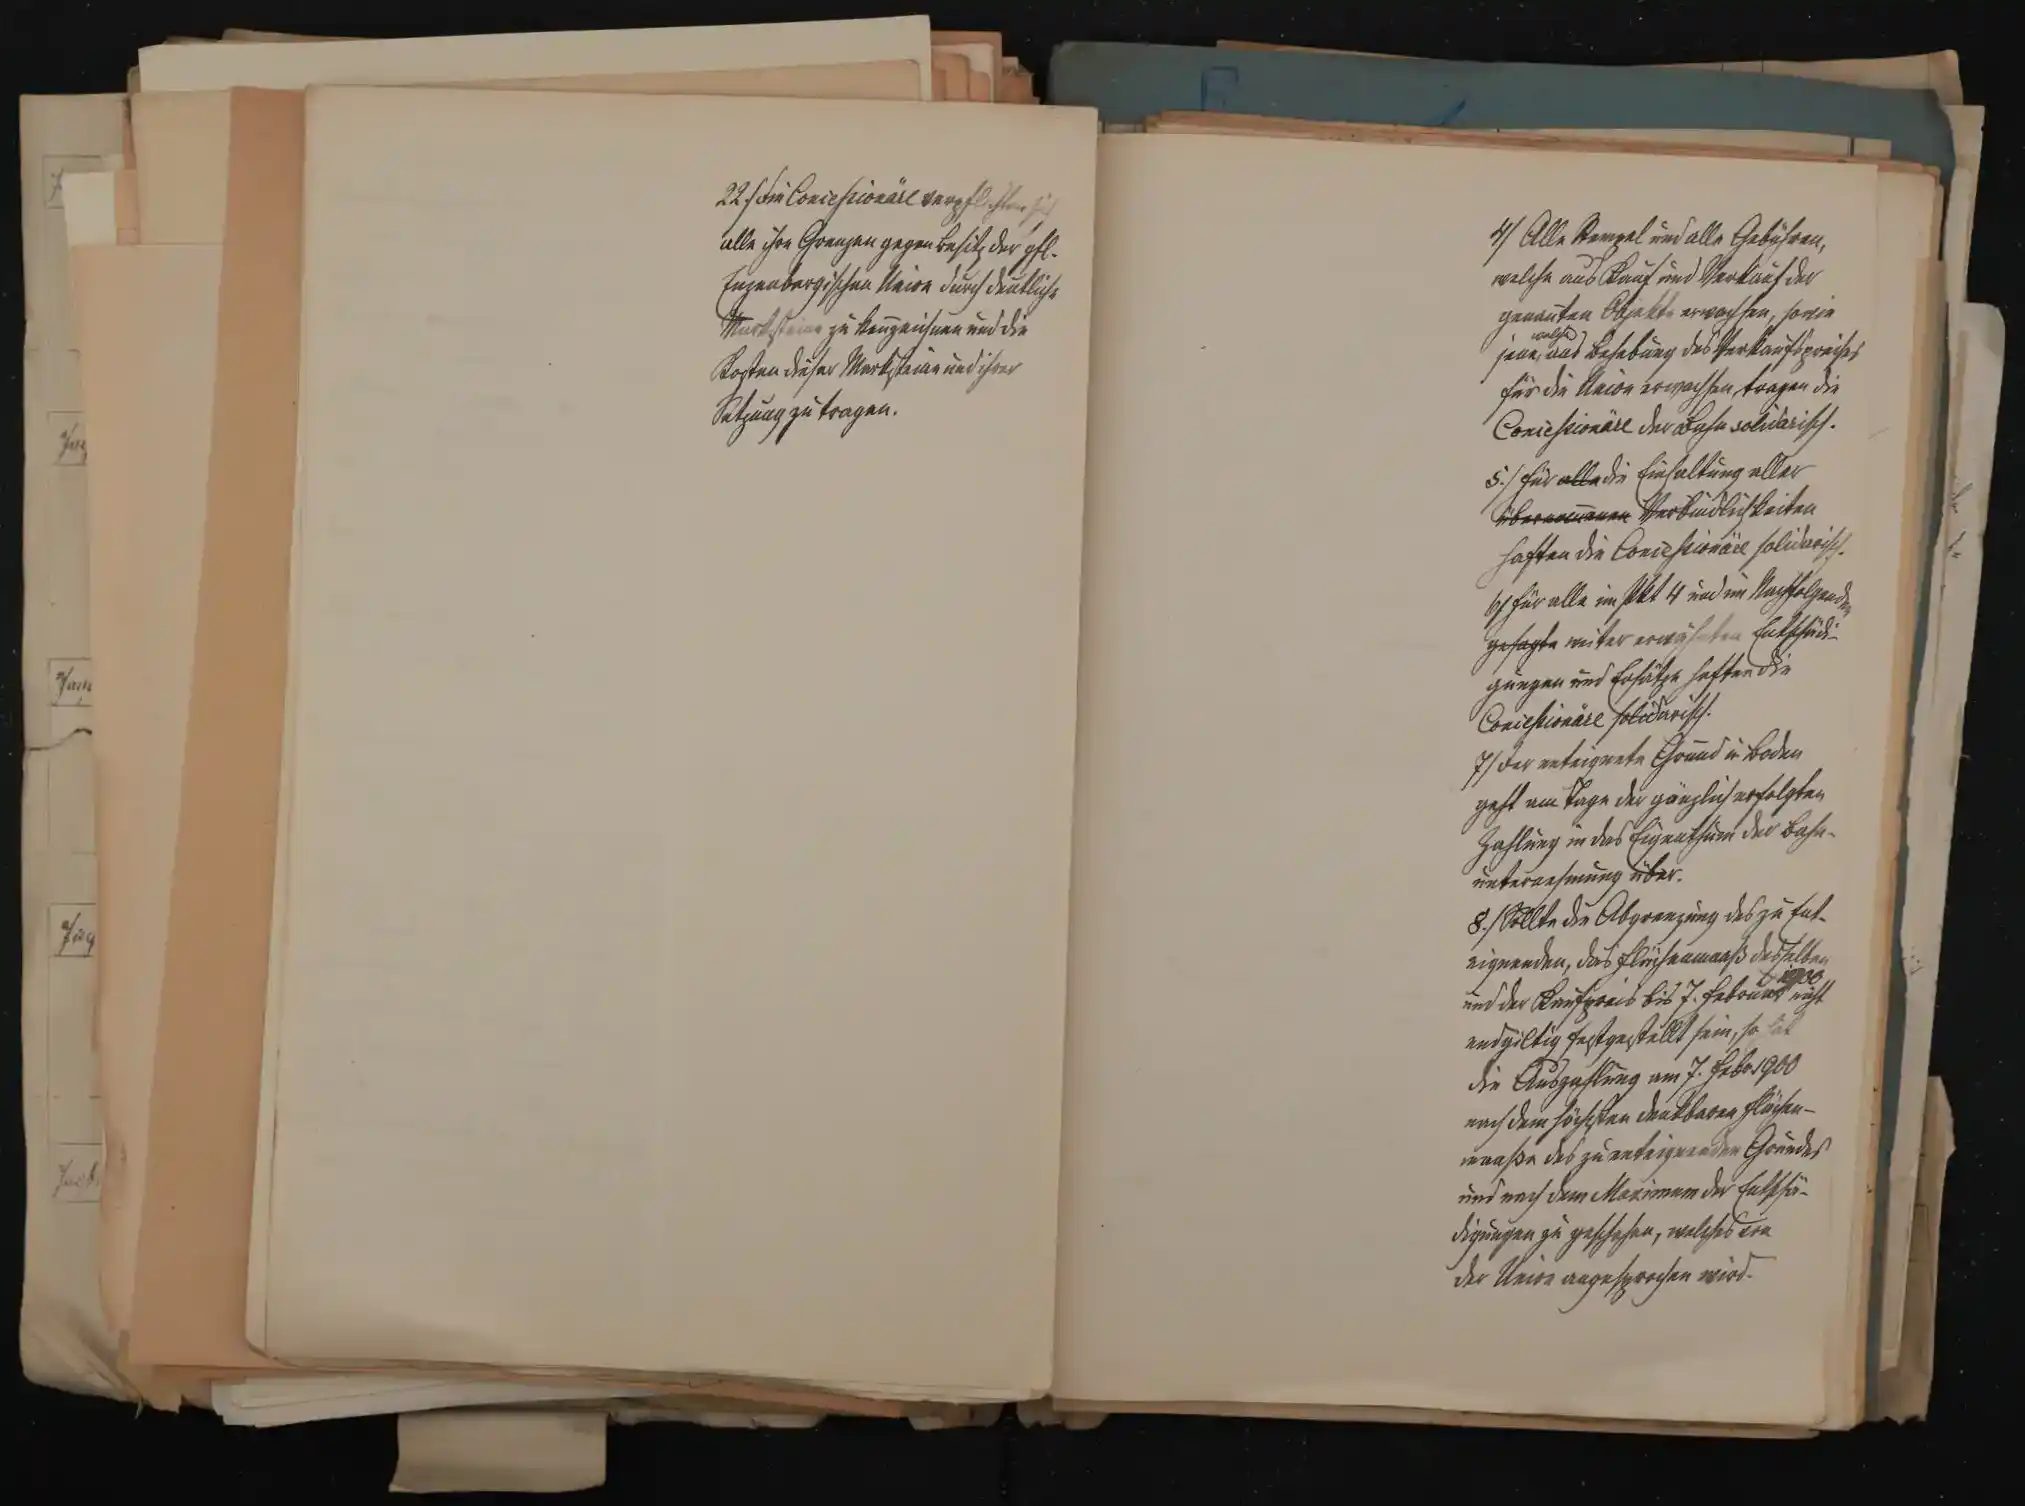 22./ Die Concessionäre verpflichten sich
alle ihre Grenzen gegen Besitz der gfl.
Enzenbergischen Union durch deutliche
Marksteine zu kennzeichnen und die
Kosten dieser Marksteine und ihrer
Setzung zu tragen.
4/ Alle Stempel und alle Gebühren,
welche aus Kauf und Verkauf der
genannten Objekte erwachsen, sowie
jene, welche aus Behebung des Verkaufspreises
für die Union erwachsen, tragen die
Concessionäre der Bahn solidarisch.
5./ Für alle die Einhaltung aller
übernommenen Verbindlichkeiten
haften die Concessionäre solidarisch.
6/ Für alle im Pkt 4 und im Nachfolgenden
gesagte weiter erwähnten Entschädi-
gungen und Ersätze haften die
Concessionäre solidarisch.
7/ Der enteignete Grund u. Boden
geht am Tage der gänzlich erfolgten
Zahlung in das Eigenthum der Bahn-
unternehmung über.
8./ Sollte die Abgrenzung des zu Ent-
eignenden, das Flächenmaaß desselben
und der Kaufpreis bis 7. Februar 1900 nicht
endgiltig festgestellt sein, so hat
die Auszahlung am 7. Febr 1900
nach dem höchsten denkbaren Flächen-
maaße des zu enteignenden Grundes
und nach dem Maximum der Entschä-
digungen zu geschehen, welches von
der Union angesprochen wird.